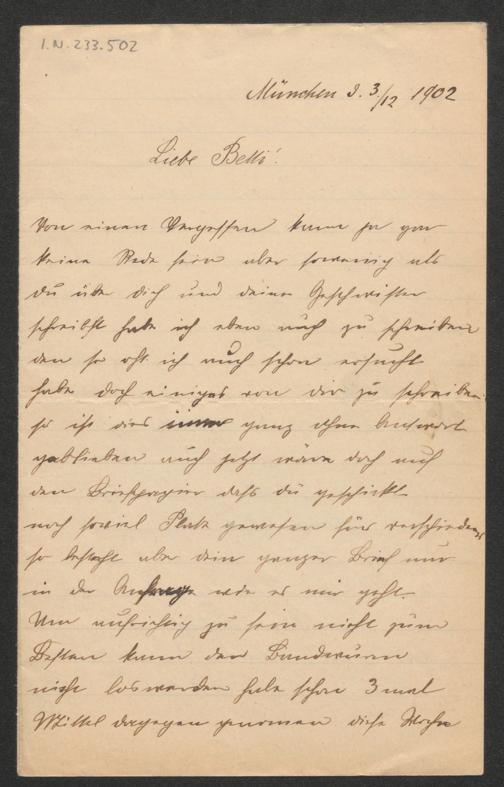 I.N. 233.502
München d. 3/12 1902
Liebe Betti!
Von einen Vergessen kann ja gar
keine Rede sein aber sowenig als
du über dich und deine Geschwister
schreibst habe ich eben auch zu schreiben
den so oft ich auch schon ersucht
habe doch einiges von dir zu schreiben
so ist dies immer ganz ohne Antwort
geblieben auch jetzt wäre doch auf
den Briefpapier daß du geschickt
noch soviel Platz gewesen für verschiedenes
so besteht aber dein ganzer Brief nur
in der Anfrage wie es mir geht.
Um aufrichtig zu sein nicht zum
Besten kann den Bandwurm
nicht loswerden habe schon 3 mal
Mittel dagegen genomen diese Woche